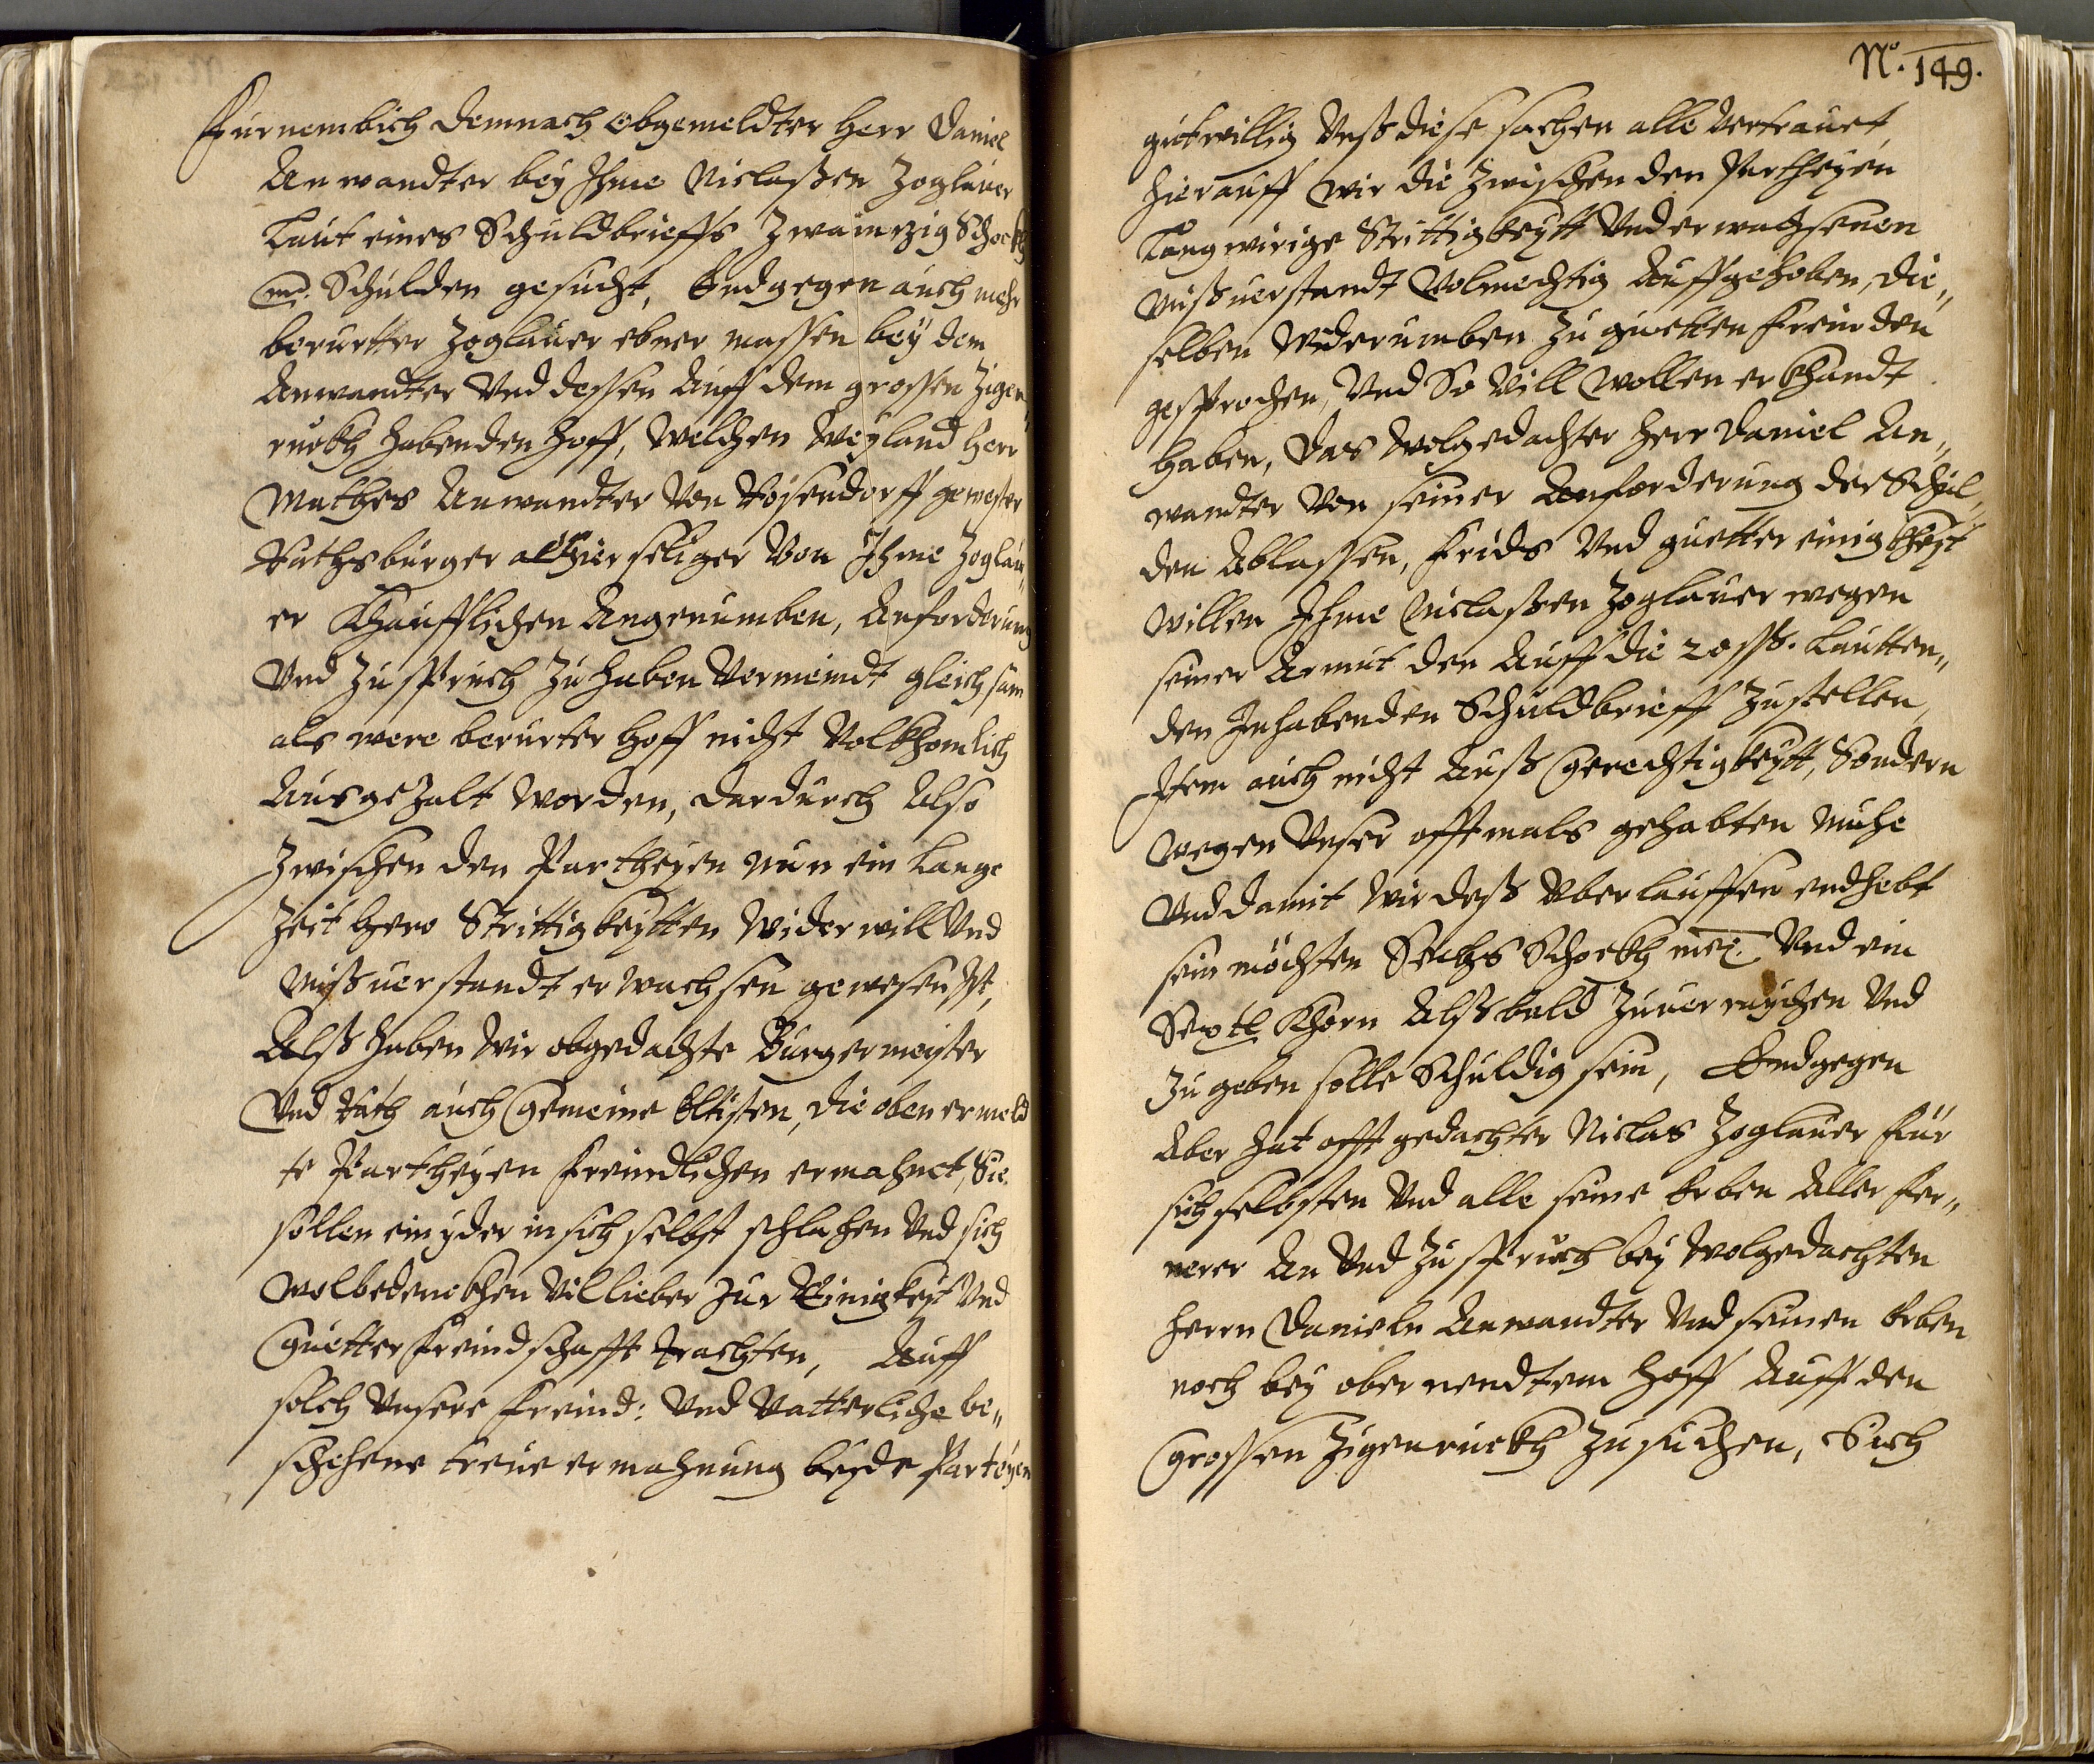 Fürnemblich demnach obgemeldter Herr Daniel
Anwandter bey Ihme Niclaßen Zoglauer
Laut eines Schuldbrieffs Zwaintzig Schockh
Schulden gesucht, Endgegen auch mehr
berurtter Zoglauer ebner massen bey dem
Anwandter Vnd dessen Auff dem grossen Zigen„
ruckh habenden Hoff, Welchen Weyland Herr
Mathes Anwandter Von Rosendorff gewester
Rathsburger alhier seliger Von Ihme Zoglau„
er Khaufflichen Angenumben, Anforderung
Vnd Zuspruch Zu haben Vermeindt gleichsam
als were berurter Hoff nicht Volkhomlich
Ausgezalt worden, dardurch Also
Zwischen den Partheyen nun ein Lange
Zeit hero Strittigkeytten Widerwill Vnd
Mißuerstandt erwachsen gewesen Ist,
Alß haben Wir obgedachte Burgermeister
Vnd Rath auch Gemeine Eltisten, die obenermeld
te Partheyen freundlichen ermahnet, Sie
sollen ein yder in sich selbst schlahen Vnd sich
wolbedenckhen Vil lieber Zur Einigkeyt Vnd
Guetter freindschafft trachten, Auff
solch Vnsere freind: Vnd Vatterliche be„
schehene treue ermahnung beyde Parteyen
No. 149.
gutwillig Vnß diese sachen alle Vertrauet,
Hierauff wir die Zwischen den Partheyen
Langwirige Strittigkeytt Vnd erwachsenen
Mißuerstandt Volmechtig Auffgehoben, die„
selben Widerumben Zu guetten freinden
gesprochen, Vnd So Vill wollen erkhandt
haben, das Wolgedachter Herr Daniel An„
wandter Von seiner Anforderung der Schul„
den Ablassen, frids Vnd guetter einigkheyt
willen Ihme Niclaßen Zoglauer wegen
seiner Armut den Auff die 20 ßß. Lautten„
den Inhabenden Schuldbrieff Zustellen,
Item auch nicht Auß Gerechtigkeytt, Sondern
wegen Vnser offtmals gehabten Muhe
Vnd damit Wir deß Vberlauffen endhebt
sein möchten Sechs Schockh mei. Vnd ein
Khorn Alßbald Zuuerreychen Vnd
Zu geben solle Schuldig sein, Endgegen
Aber hat offtgedachter Niclas Zoglauer für
sich selbsten Vnd alle seine Erben Aller fer„
nerer An Vnd Zuspruch bey Wolgedachten
Herrn Danieln Anwandter Vnd seinen Erben
noch bey obernendtem Hoff Auff den
Grossen Zigenruckh Zusuchen, Sich